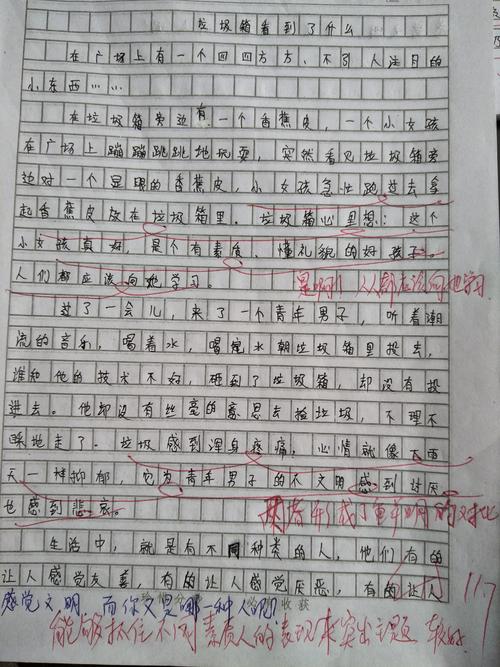 垃圾箱看到了什么
在广场上有一个四四方方、不引人注目的
小东西……
在垃圾箱旁边有一个香蕉皮，一个小女孩
在广场上蹦蹦跳跳地玩耍，突然看见垃圾箱旁
边对一个显眼的香蕉皮，小女孩急忙跑过去拿
起香蕉皮放在垃圾箱里。垃圾箱心里想：这个
小女孩真好，是个有素质、懂礼貌的好孩子。
人们都应该向她学习。
是啊！人人都应该向她学习
过了一会儿，来了一个青年男子，听着潮
流的音乐，喝着水，喝完水朝垃圾箱里投去，
谁和他的技术不好，砸到了垃圾箱，却没有投
进去。他却没有丝毫的意思去捡垃圾，不理不
睬地走了。垃圾感到浑身疼痛，心情就像下雨
天一样抑郁，它为青年男子的不文明感到讨厌
也感到悲哀。
两者形成了鲜明的对比
生活中，就是有不同种类的人，他们有的
让人感觉友善，有的让人感觉厌恶，有的让人
感觉文明，而你又是哪一种人呢？
收获
117
能够抓住不同素质人的表现来突出主题 较好